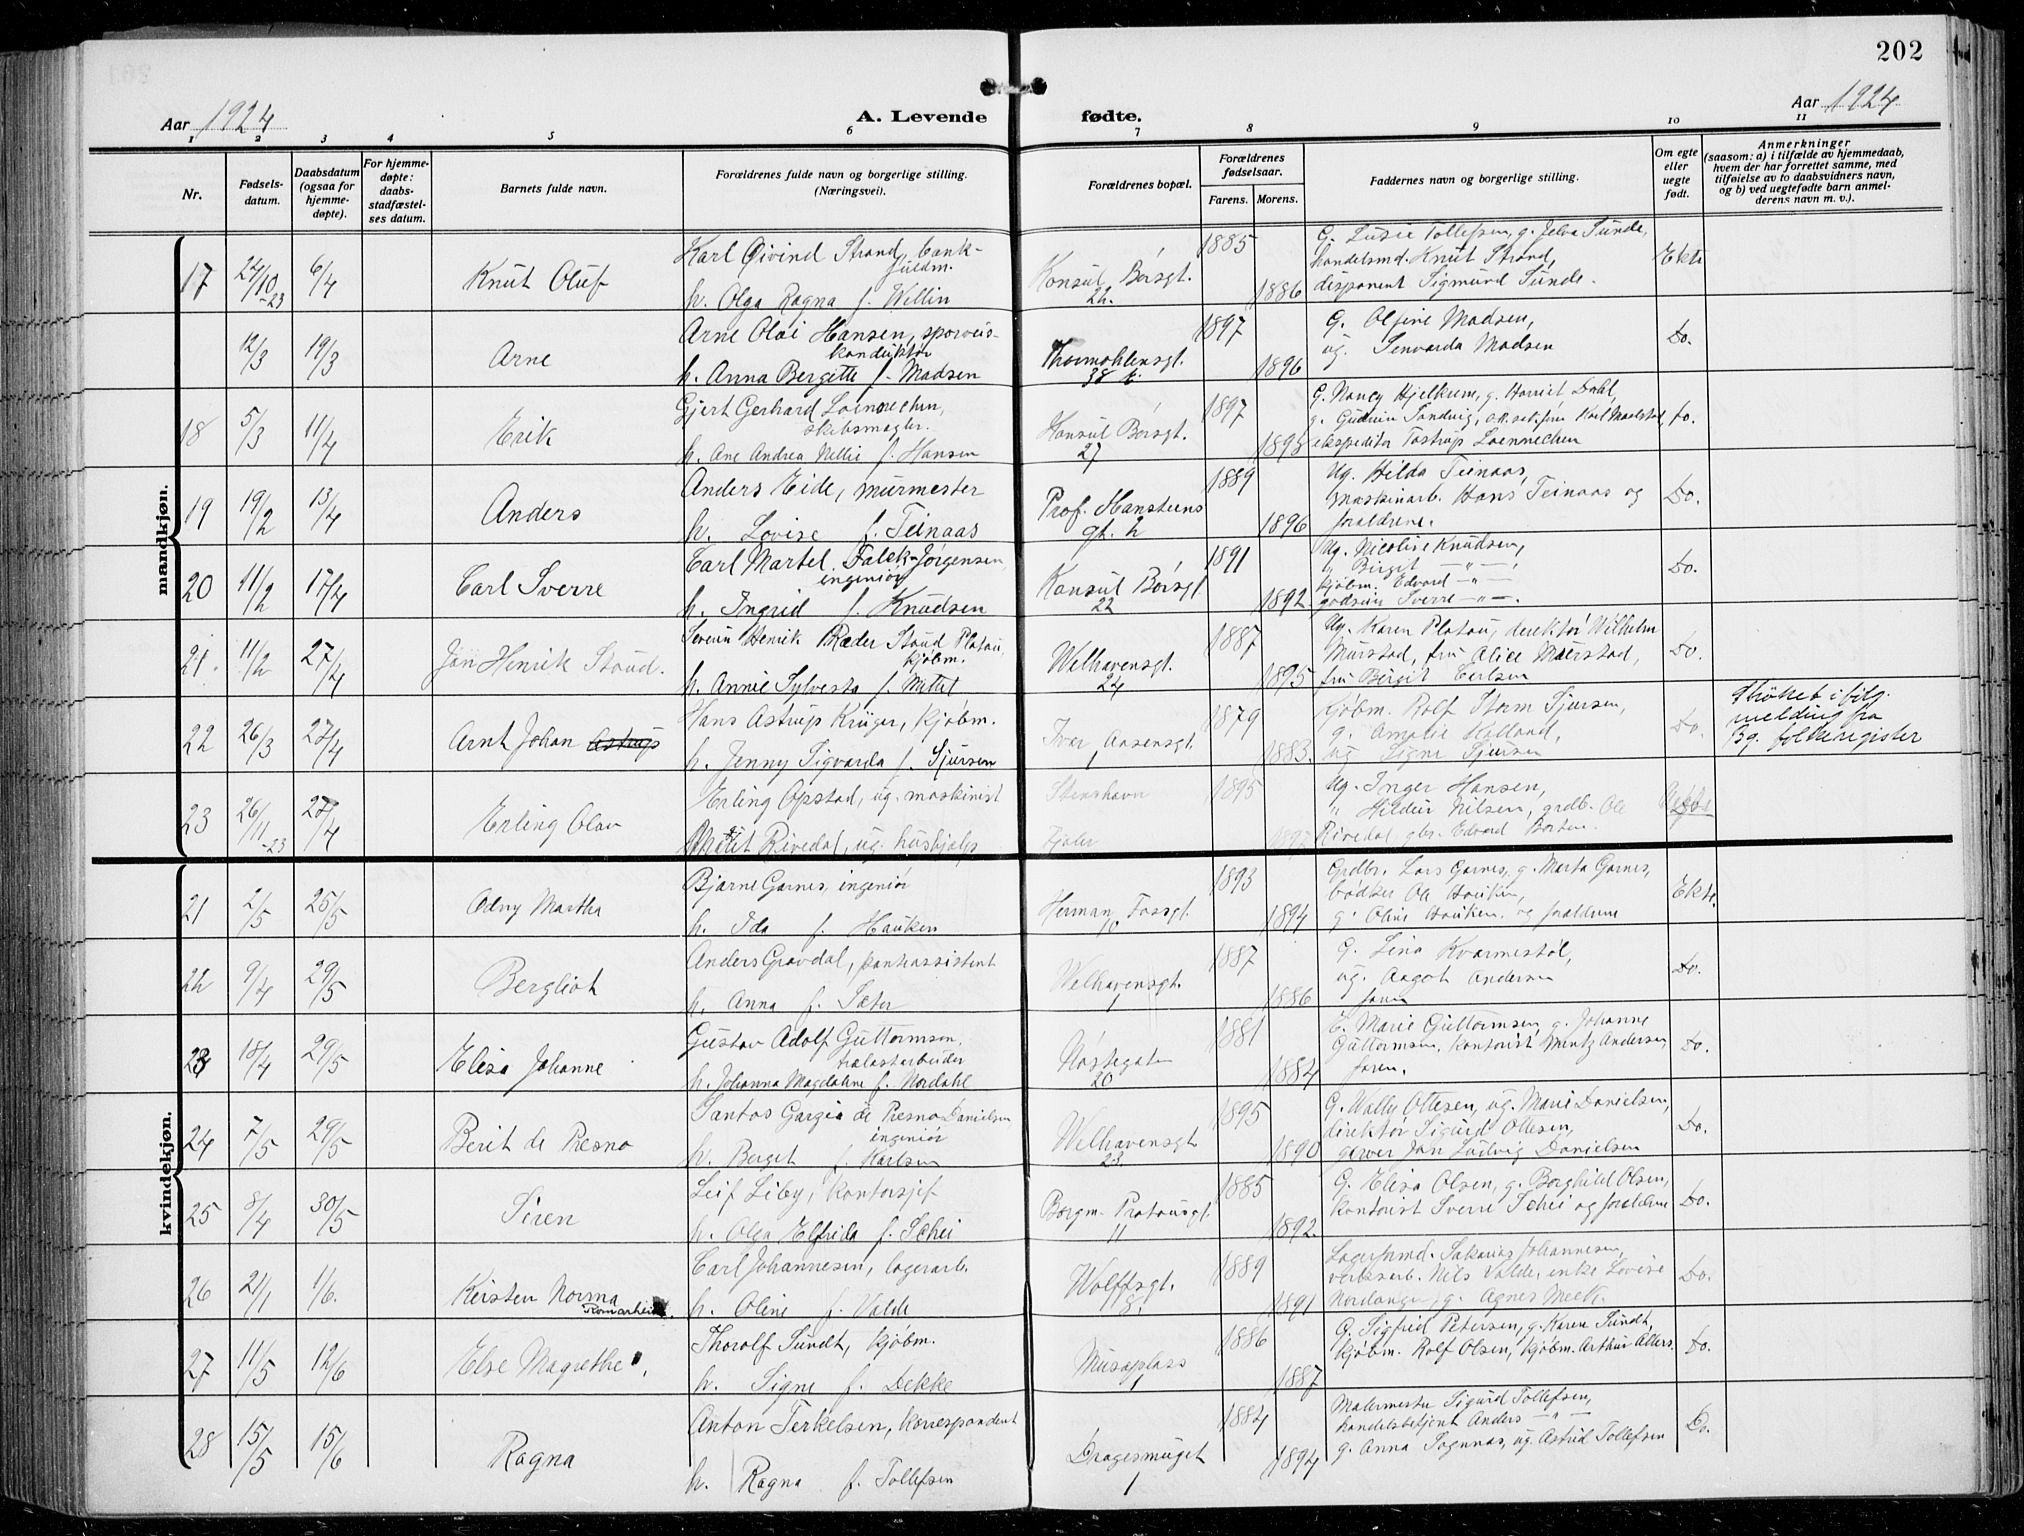 202
Aar 1924
A. Levende fødte.
Aar 1924
1 2 3 4 5 6 7 8 9 10 11
Nr.
Fødsels-
datum.
Daabsdatum
(ogsaa for
hjemme-
døpte).
For hjemme-
døpte:
daabs-
stadfæstel-
ses datum.
Barnets fulde navn.
Forældrenes fulde navn og borgerlige stilling.
(Næringsvei).
Forældrenes bopæl.
Forældrenes
fødselsaar.
Farens. Morens.
Faddernes navn og borgerlige stilling.
Om egte
eller
uegte
født.
Anmerkninger
(saasom: a) i tilfælde av hjemmedaab,
hvem der har forrettet samme, med
tilføielse av to daabsvidners navn,
og b) ved uegtefødte barn anmel-
derens navn m. v.).
mandkjøn.
17 24/10 -23 6/4 Knut Oluf
Karl Øivind Strand, bank-
fuldm.
h. Olga Ragna f. Wellin
Konsul Børsgt.
22.
1885
1886
G. Lusie Tollefsen, g. Jelva Sunde,
handelsmd. Knut Strand,
disponent Sigmund Sunde.
Ekte
12/3 19/3 Arne
Arne Olai Hansen, sporveis-
konduktør
h. Anna Bergitte f. Madsen
Thormøhlensgt.
38 b.
1897
1896
G. Oline Madsen,
ug. Senvarda Madsen
Do.
18 5/3 11/4 Erik
Gjert Gerhard Loennechen,
skibsmegler.
h. Ane Andrea Nellie f. Hansen
Konsul Børsgt.
27
1897
1893
G. Nancy Hjelkrem, g. Harriet Dahl,
g. Gudrun Tandvig,
ekspeditør Tostrup Loennechen
Do.
19 19/2 13/4 Anders
Anders Eide, murmester
h. Lovise f. Teinaas
Prof. Hansteens
gt. 2
1889
1896
Ug. Hilda Teinaas,
maskinarb. Hans Teinaas og
foreldrene.
Do.
20 11/2 17/4 Carl Sverre
Carl Martel Falck-Jørgensen,
ingeniør
h. Ingrid f. Knudsen
Konsul Børsgt
22
1891
1892
Ug. Nicoline Knudsen,
" Birgit —"—,
kjøbm. Edvard —"—
godseier Sverre —"—.
Do.
21. 11/2 27/4 Jan Henrik Stoud.
Severin Henrik Ræder Stoud Platou,
kjøbm.
h. Annie Sylvesta f. Mettel
Welhavensgt.
24
1887
1895
Ug. Karen Platou, direktør Wilhelm
Murstad, fru Alice Murstad,
fru Bergit Carlsen
Do.
22 26/3 27/4 Arnt Johan Astrup
Hans Astrup Krüger, kjøbm.
h. Jenny Sigvarda f. Sjursen
Ivar Aasensgt.
1
1879
1883.
Kjøbm. Rolf Storm Sjursen,
g. Amalie Kolland,
ug. Signe Sjursen
Do.
Strøket i følg.
melding fra
Bg. folkeregister
23 26/11 -23 27/4 Erling Olav
Erling Opstad, ug. maskinist
Marit Rivedal, ug. hushjelp
Stenshavn
Fjaler
1895
1897
Ug. Inger Hansen,
" Hildur Nilsen, grdb. Ole
Rivedal, gbr. Edvard Borten.
Uekte
kvindekjøn.
21 2/5 25/5 Odny Martha
Bjarne Garnes, ingeniør
h. Ida f. Hauken
Herman Fossgt.
1893
1894
Grdbr. Lars Garnes, g. Marta Garnes,
bødker Ole Hauken,
g. Oline Hauken. og foreldrene
Ekte.
22 9/4 29/5 Bergliot
Anders Gravdal, bankassistent
h. Anna f. Sæter
Welhavensgt.
1
1887
1886
G. Lina Kvarmestøl,
ug. Aagot Andersen
faren
Do.
23 18/4 29/5 Elisa Johanne
Gustav Adolf Guttormsen,
trælastarbeider
h. Johanna Magdalene f. Nordahl
Nøstegaten
20
1881
1884
E. Marie Guttormsen, g. Johanne
Guttormsen, kontorist Mintz Andersen,
faren.
Do.
24 7/5 29/5 Berit de Presno
Santos Gargia de Presno Danielsen
ingeniør
h. Berget f. Karlsen
Welhavensgt
23.
1895
1890
G. Wally Ottesen, ug. Marie Danielsen,
direktør Sigurd Ottesen,
garver Jan Ludvig Danielsen
Do.
25 8/4 30/5 Siren
Leif Liby, kontorsjef
h. Olga Elfrida f. Schei
Borgm. Platousgt.
11
1885
1892.
G. Elisa Olsen, g. Borghild Olsen,
kontorist Sverre Schei og foreldrene
Do.
26 21/1 1/6. Kirsten Norma
Romarheim.
Carl Johannesen, lagerarb.
h. Oline f. Valde
Wolffsgt.
8.
1889
1891
Lagerformd. Sakarias Johannesen,
verksarb. Nils Valde, enke Lovise
Nordanger, g. Agnes Meek.
Do.
27 11/5 12/6 Else Magrethe.
Thorolf Sundt, kjøbm.
h. Signe f. Dekke
Museplass
1
1886
1887
G. Sigfrid Petersen, g. Karen Sundt,
kjøbm. Rolf Olsen, kjøbm. Arthur Allers.
Do.
28 15/5 15/6 Ragna
Anton Terkelsen, korrespondent
h. Ragna f. Tollefsen
Dragesmuget
1
1884
1894
Malermester Sigurd Tollefsen,
handelsbetjent Anders —"—
g. Anna Sognnæs, ug. Astrid Tollefsen
Do.